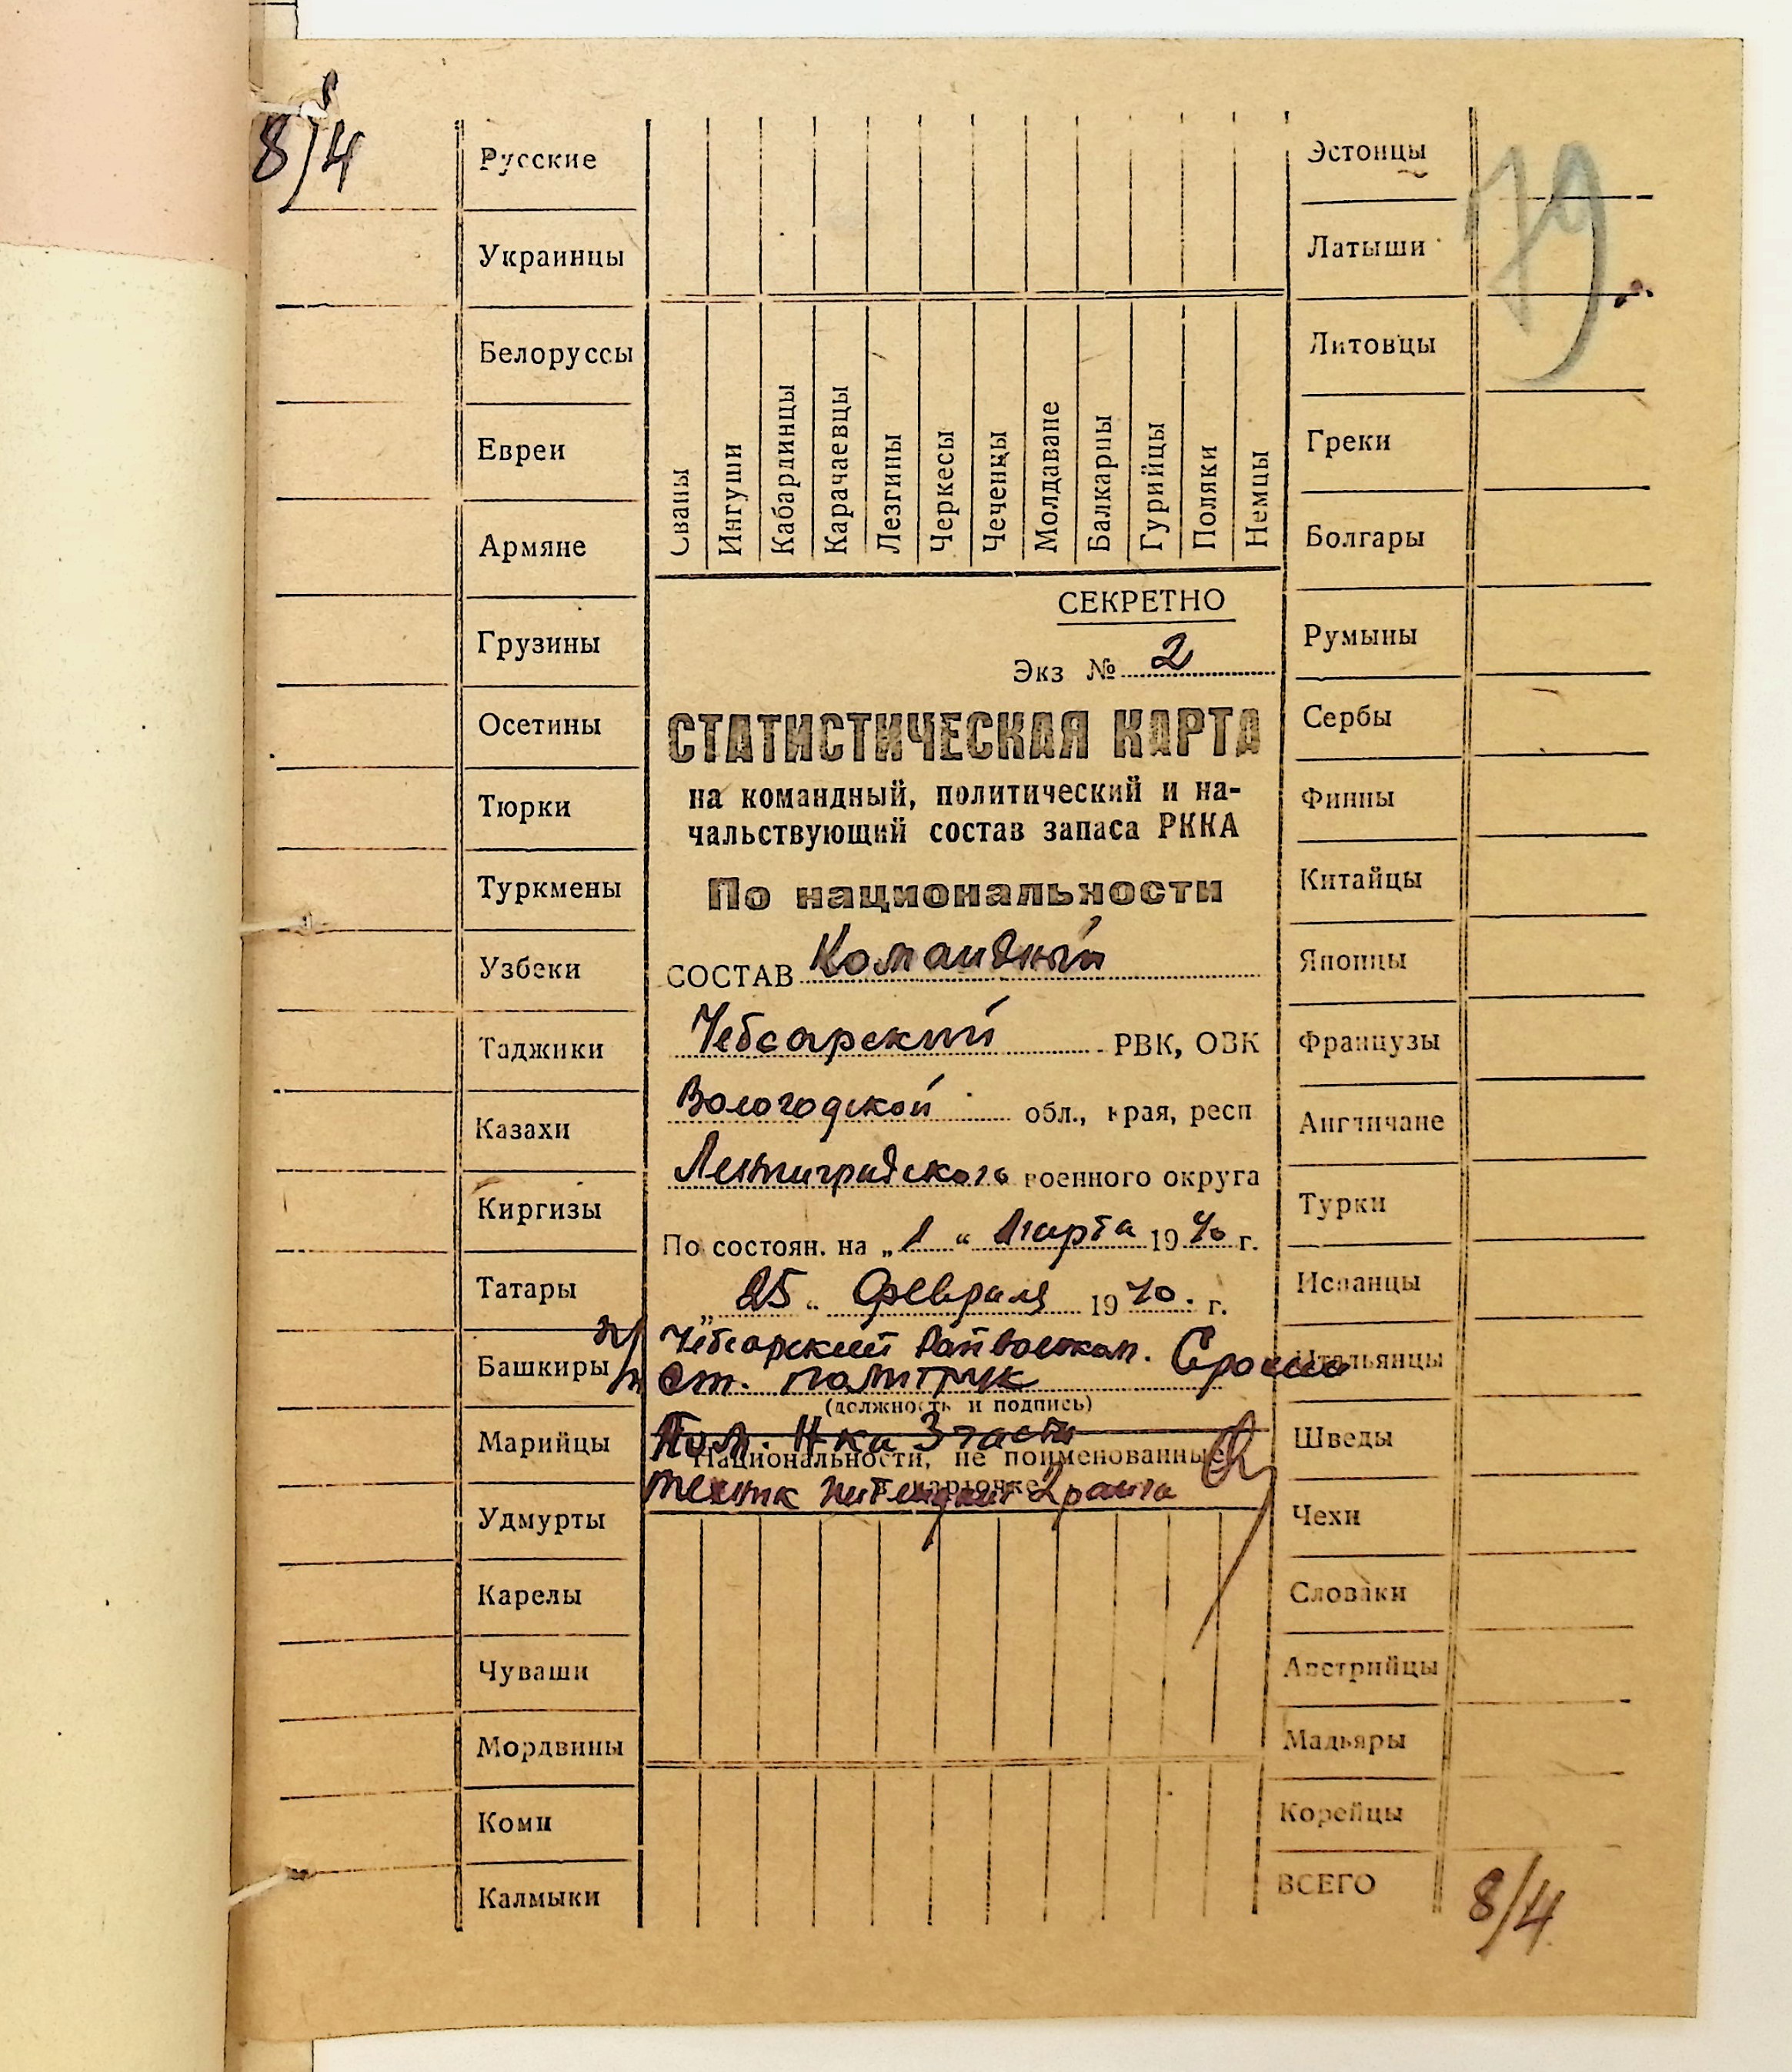 8/4
Русские
Украинцы
Белоруссы
Евреи
Армяне
Грузины
Осетины
Тюрки
Туркмены
Узбеки
Таджики
Казахи
Киргизы
Татары
Башкиры
Марийцы
Удмурты
Карелы
Чуваши
Мордвины
Коми
Калмыки
Сваны
Ингуши
Кабардинцы
Карачаевцы
Лезгины
Черкесы
Чеченцы
Молдаване
Балкарцы
Гурийцы
Поляки
Немцы
СЕКРЕТНО
Экз № 2
СТАТИСТИЧЕСКАЯ КАРТА
на командный, политический и на-
чальствующий состав запаса РККА
По национальности
СОСТАВ Командный
Чебсарский РВК, ОВК
Вологодской обл., края, респ
Ленинградского военного округа
По состоян. на „1“ Марта 1940 г.
„25“ Февраля 1940. г.
Чебсарский Райвоенком.
ст. политрук
(должность и подпись)
Пом. Н-ка 3 части
Национальности, не поименованные
в карточке
техник интендант 2 ранга
Эстонцы
Латыши
Литовцы
Греки
Болгары
Румыны
Сербы
Финны
Китайцы
Японцы
Французы
Англичане
Турки
Испанцы
Итальянцы
Шведы
Чехи
Словаки
Австрийцы
Мадьяры
Корейцы
ВСЕГО 8/4
79